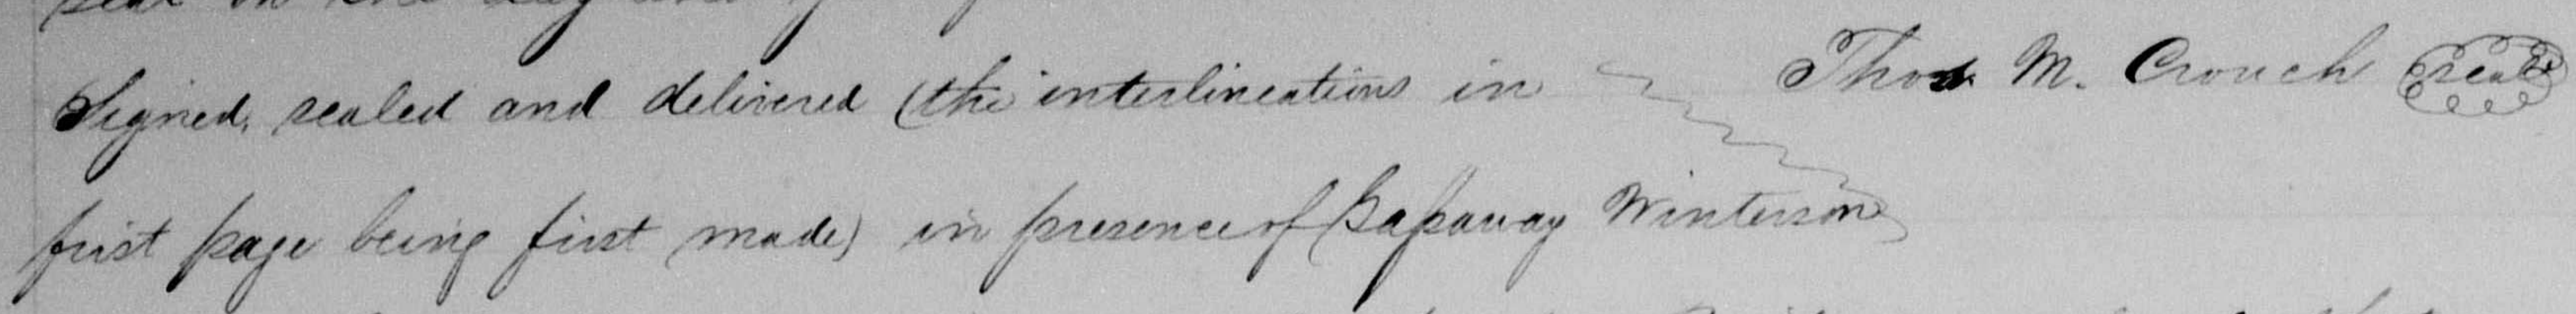 Signed, sealed and delivered (the interlineations in Thos. M. Crouch seal
first page being first made) in presence of Gassaway Winterson